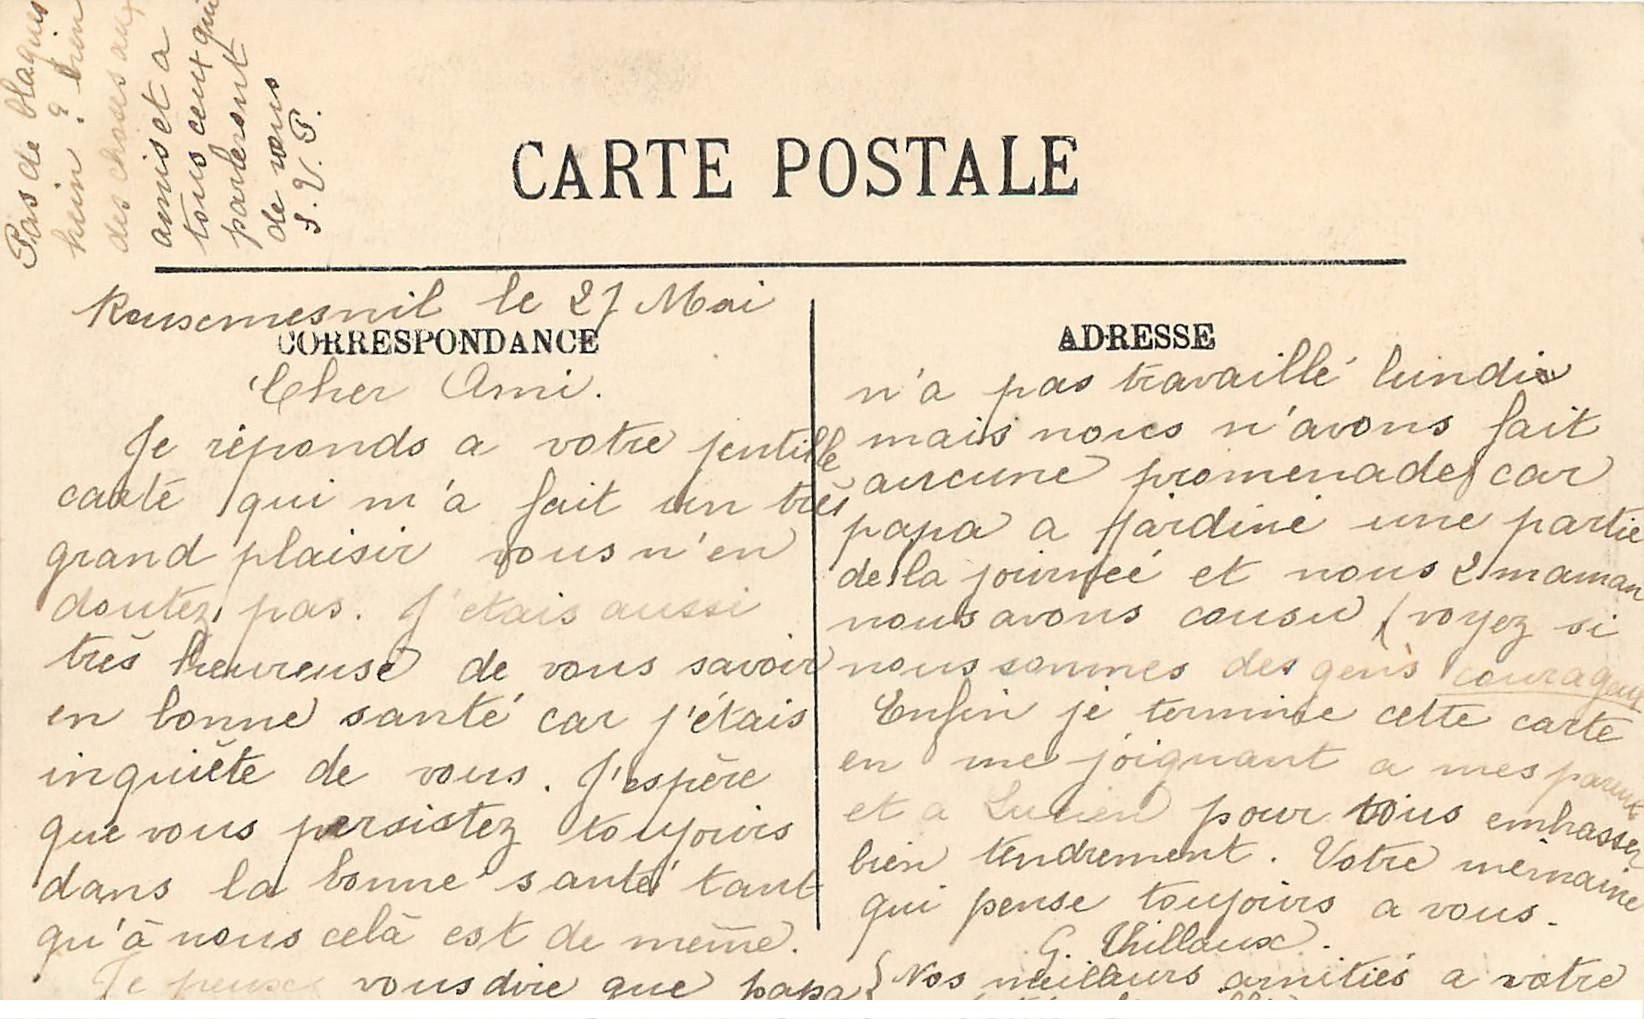 Pas de blagues
hein ? bien
des choses aux
amis et a
tous ceux qui
parleront
de vous
S. V. P.
CARTE POSTALE
Rousemesnil le 27 Mai
CORRESPONDANCE
Cher Ami.
Je réponds a votre jentille
carte qui m'a fait un très
grand plaisir vous n'en
doutez pas. J'etais aussi
très heureuse de vous savoir
en bonne santé car j'étais
inquiète de vous. J'espère
que vous persistez toujours
dans la bonne santé tant
qu'à nous celà est de même.
Je peux vous dire que papa
ADRESSE
n'a pas travaillé lundi
mais nous n'avons fait
aucune promenade car
papa a jardiné une partie
de la journée et nous 2 maman
nous avons cousu (voyez si
nous sommes des gens courageux
Enfin je termine cette carte
en me joignant a mes parents
et a Lucien pour vous embasser
bien tendrement. Votre mémaine
qui pense toujours a vous.
G. Thillaux.
Nos meilleurs amitiés a votre